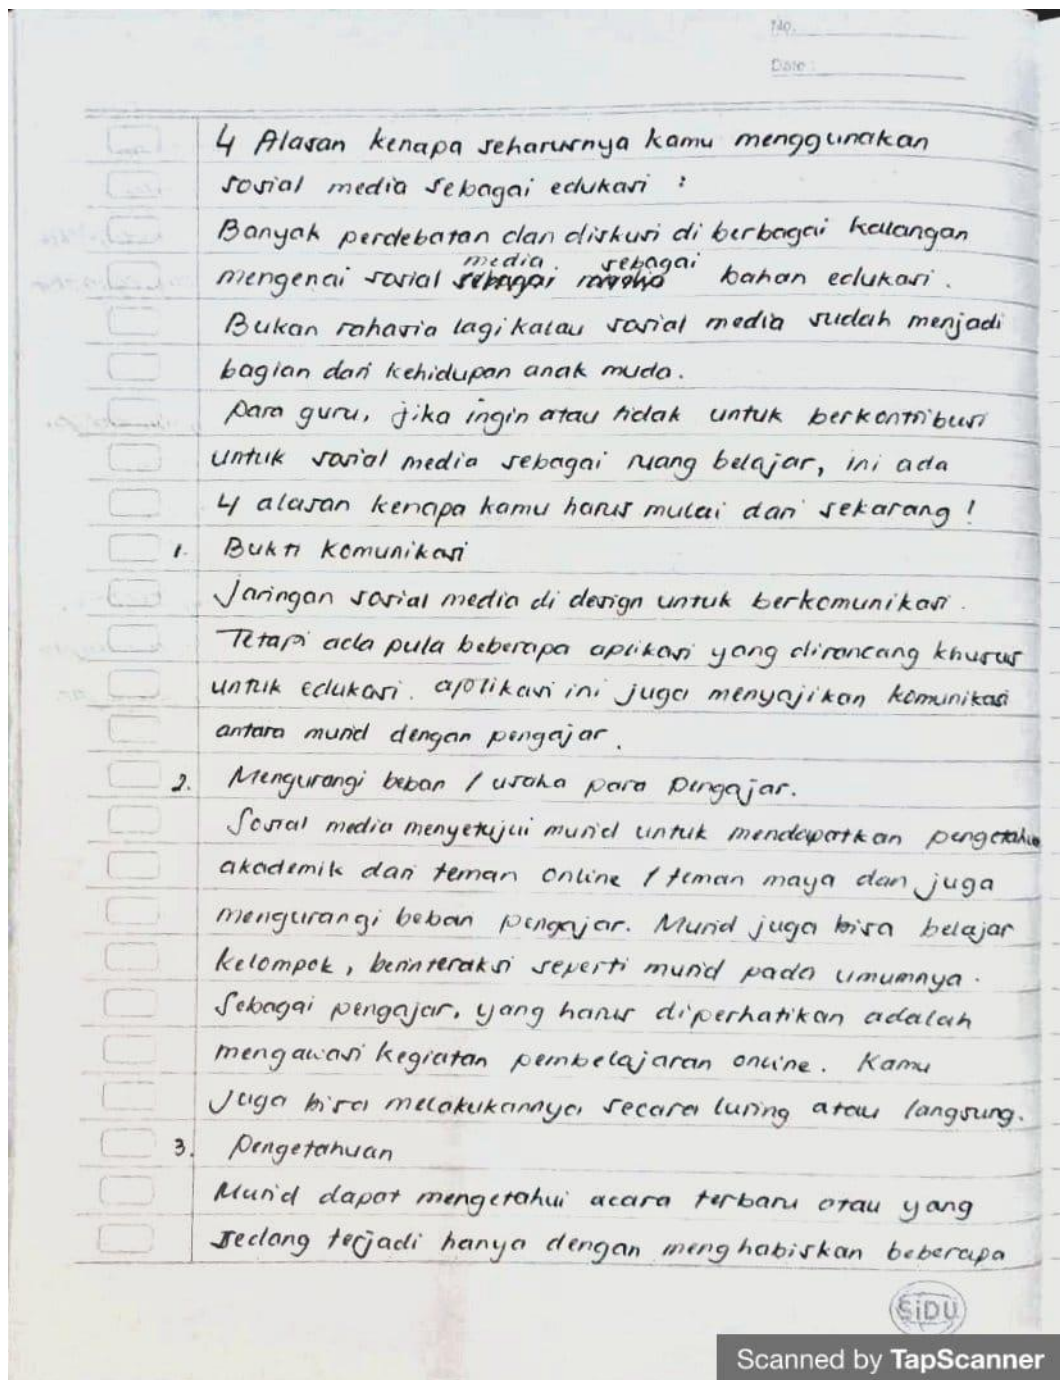 No.
Date :
4 Alasan kenapa seharusnya kamu menggunakan
sosial media sebagai edukasi :
Banyak perdebatan dan diskusi di berbagai kalangan
mengenai sosial media sebagai bahan edukasi.
Bukan rahasia lagi kalau sosial media sudah menjadi
bagian dari kehidupan anak muda.
Para guru, jika ingin atau tidak untuk berkontribusi
untuk sosial media sebagai ruang belajar, ini ada
4 alasan kenapa kamu harus mulai dari sekarang !
1. Bukti Komunikasi
Jaringan sosial media di design untuk berkomunikasi.
Tetapi ada pula beberapa aplikasi yang dirancang khusus
untuk edukasi. aplikasi ini juga menyajikan komunikasi
antara murid dengan pengajar.
2. Mengurangi beban / usaha para pengajar.
Sosial media menyetujui murid untuk mendapatkan
akademik dari teman online / teman maya dan juga
mengurangi beban pengajar. Murid juga bisa belajar
kelompok, berinteraksi seperti murid pada umumnya.
Sebagai pengajar, yang harus diperhatikan adalah
mengawasi kegiatan pembelajaran online. Kamu
juga bisa melakukannya secara luring atau langsung.
3. Pengetahuan
Murid dapat mengetahui acara terbaru atau yang
sedang terjadi hanya dengan menghabiskan beberapa
SiDU
Scanned by TapScanner